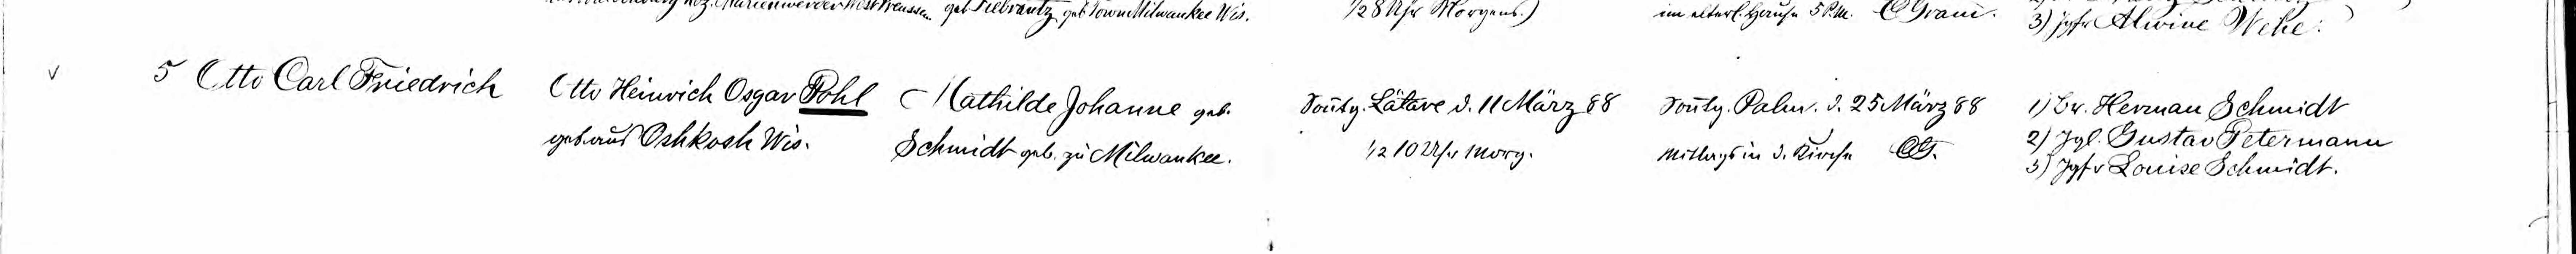 Marienwerder West Preussen. geb. Town Milwaukee Wis. ½ 8 Uhr Morgens.) im elterl. Hause 5 P.M. 3) Jgfr Alwine Wehe.
5 Otto Carl Friedrich
Otto Heinrich Osgar Pohl
geb. aus Oshkosh Wis.
Mathilde Johanne geb.
Schmidt geb. zu Milwaukee.
Sontg. Lätare d. 11 März 88
½ 10 Uhr Morg.
Sontg. Palm. d. 25 März 88
Mittags in d. Kirche CG.
1) Hr. Herman Schmidt
2) Jgl. Gustav Petermann
3) Jgfr Louise Schmidt.